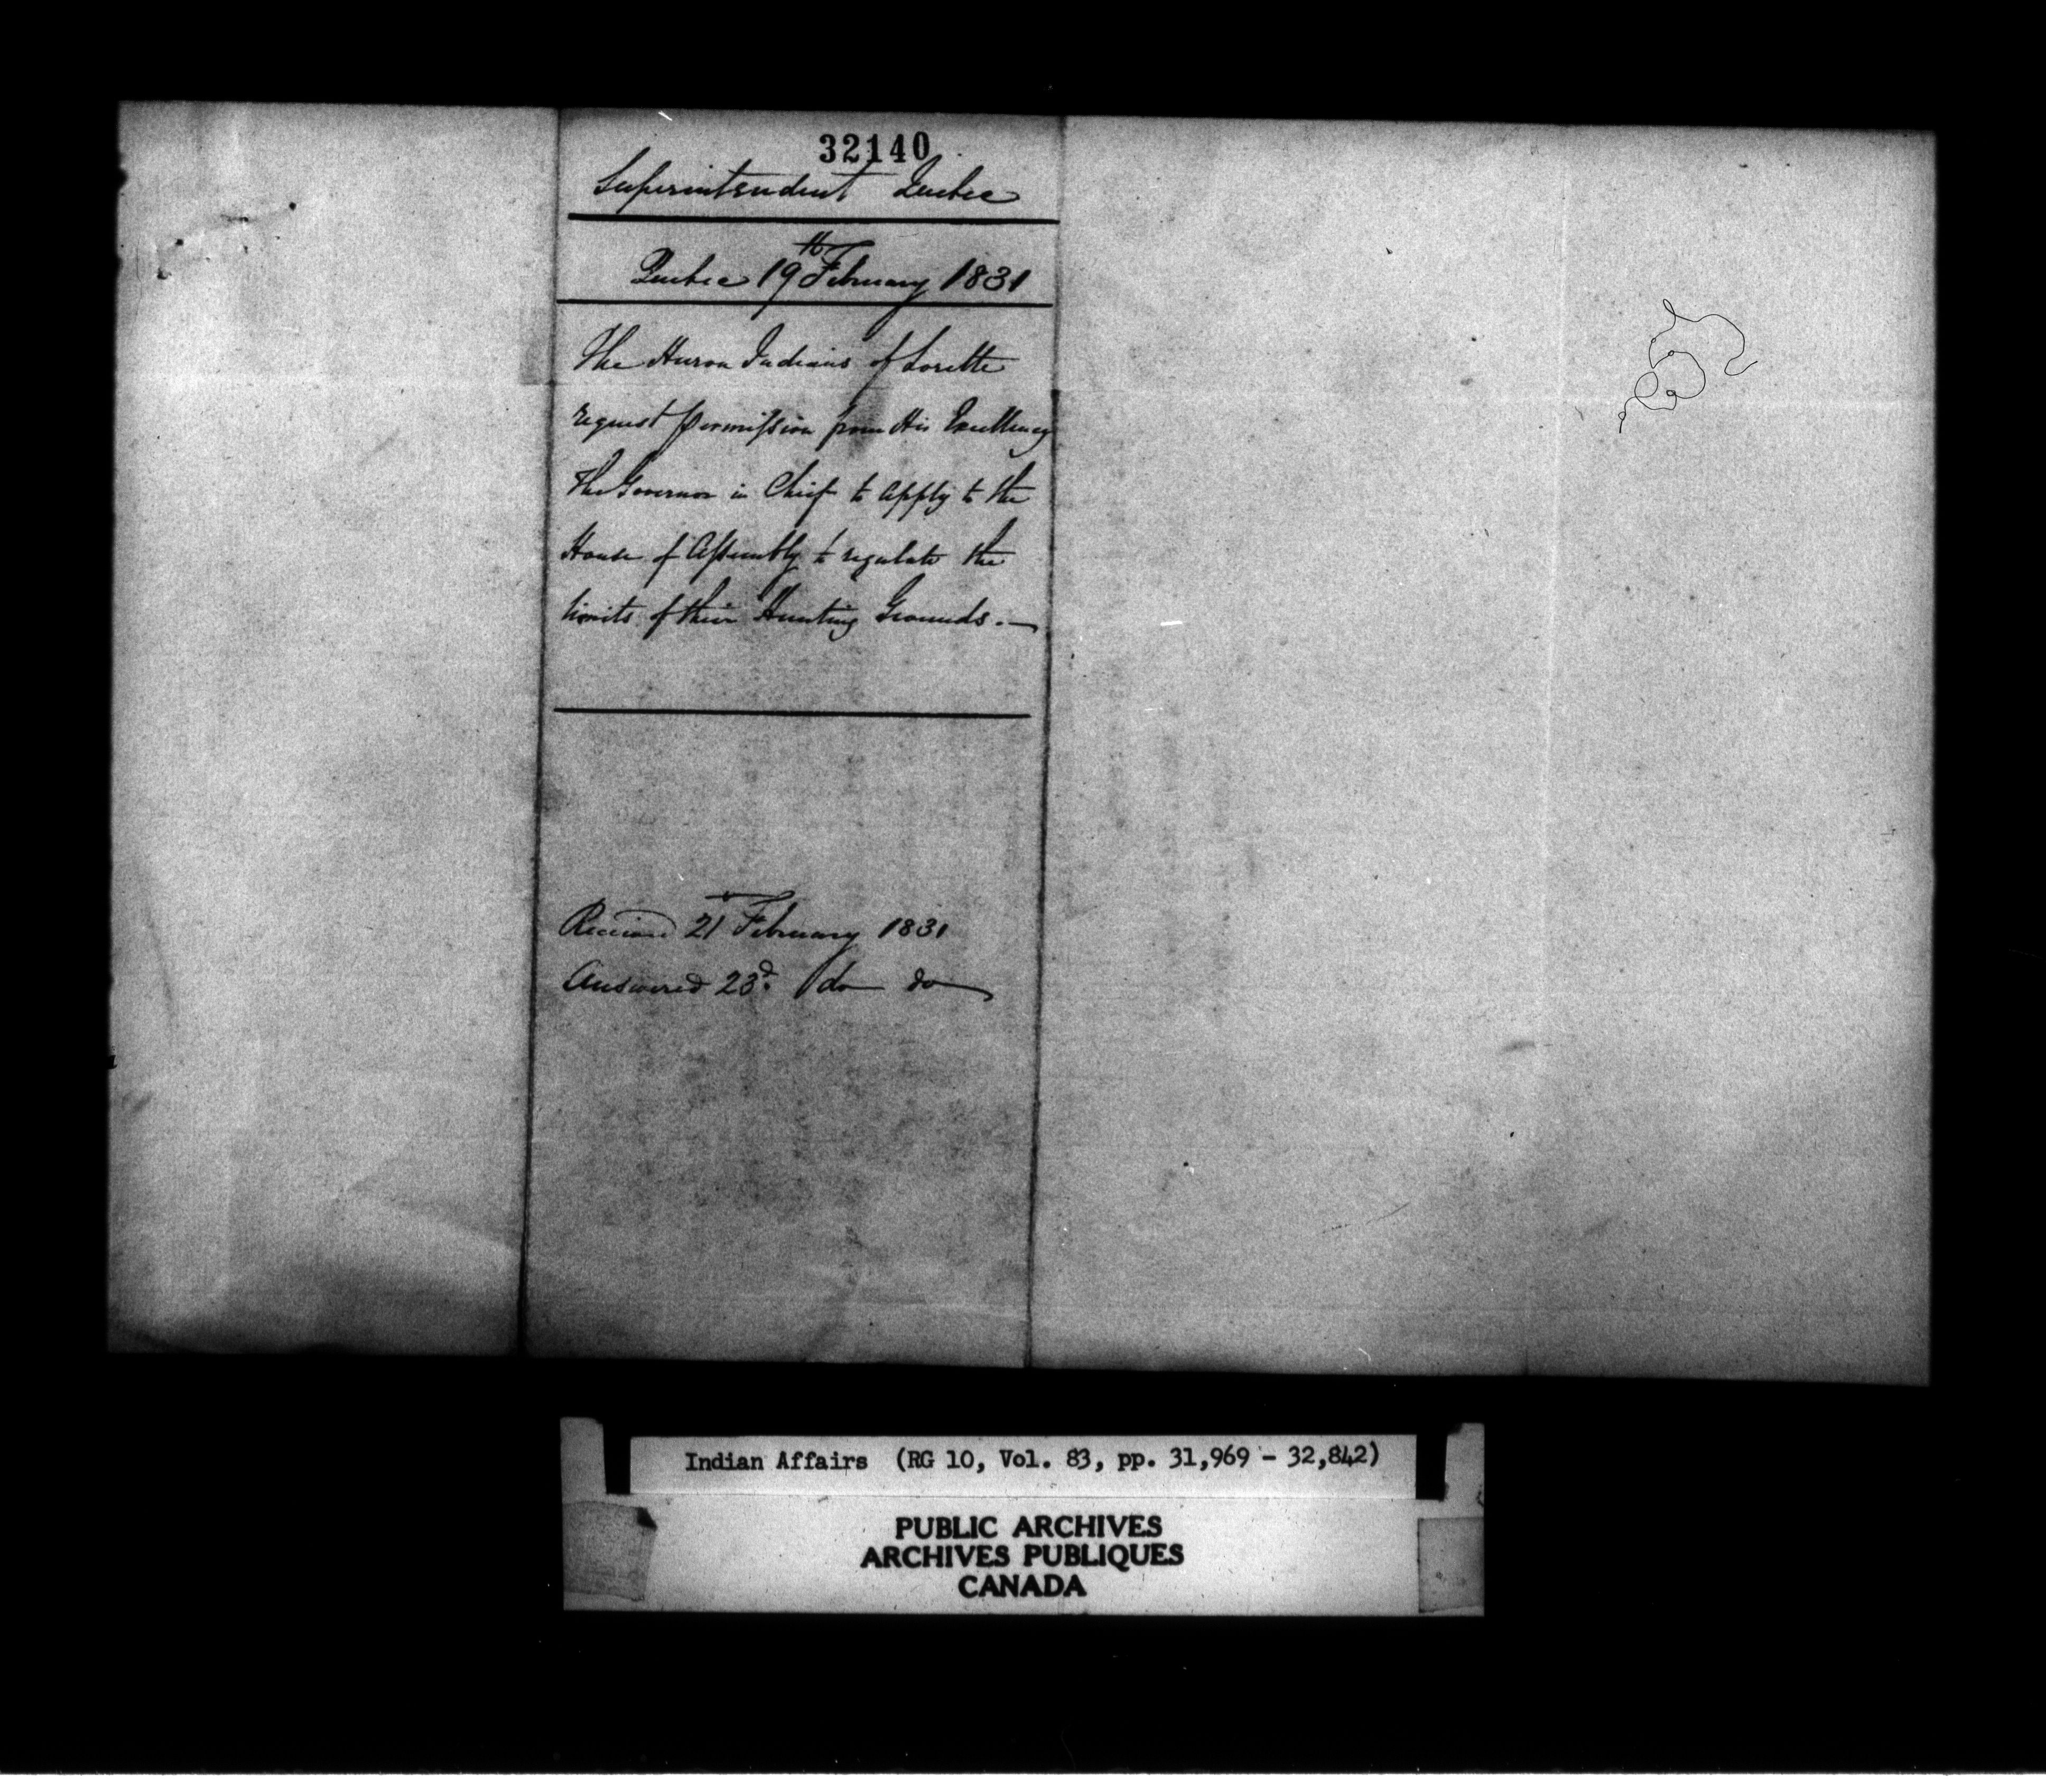 32140
Superintendent Quebec
Quebec 19th February 1831
The Huron Indians of Lorette
request permission from His Excellency
The Governor in Chief to apply to the
House of Assembly to regulate the
limits of their Hunting Grounds. —
Received 21st February 1831
Answered 23d. do do
Indian Affairs (RG 10, Vol. 83, pp. 31,969 - 32,842)
PUBLIC ARCHIVES
ARCHIVES PUBLIQUES
CANADA